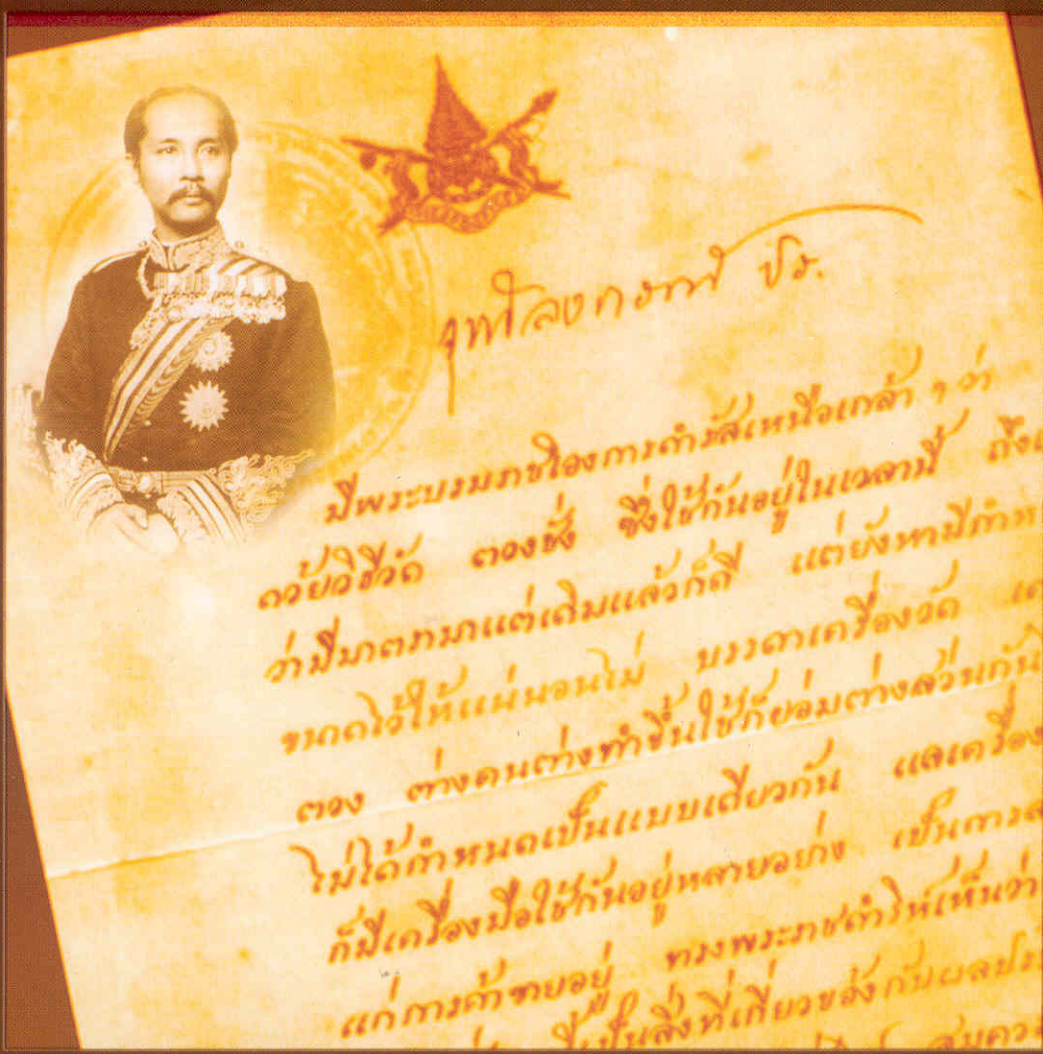 จุฬาลงกรณ์ ปร.
มีพระบรมราชโองการดำรัสเหนือเกล้า ฯ ว่า
ด้วยวิธีวัด ตวงชั่ง ซึ่งใช้กันอยู่ในเวลานี้ ถึง
ว่ามีมาตรามาแต่เดิมแล้วก็ดี แต่ยังหามีกำห
ขนาดไว้ให้แน่นอนไม่ บรรดาเครื่องวัด
ตวง ต่างคนต่างทำขึ้นใช้ก็ย่อมต่างส่วนกัน
ไม่ได้กำหนดเป็นแบบเดียวกัน แลเครื่อง
ก็มีเครื่องมือใช้กันอยู่หลายอย่าง เป็นการ
แก่การค้าขายอยู่ ทรงพระราชดำริห์เห็นว่า
เป็นสิ่งที่เกี่ยวข้องกับผลประ